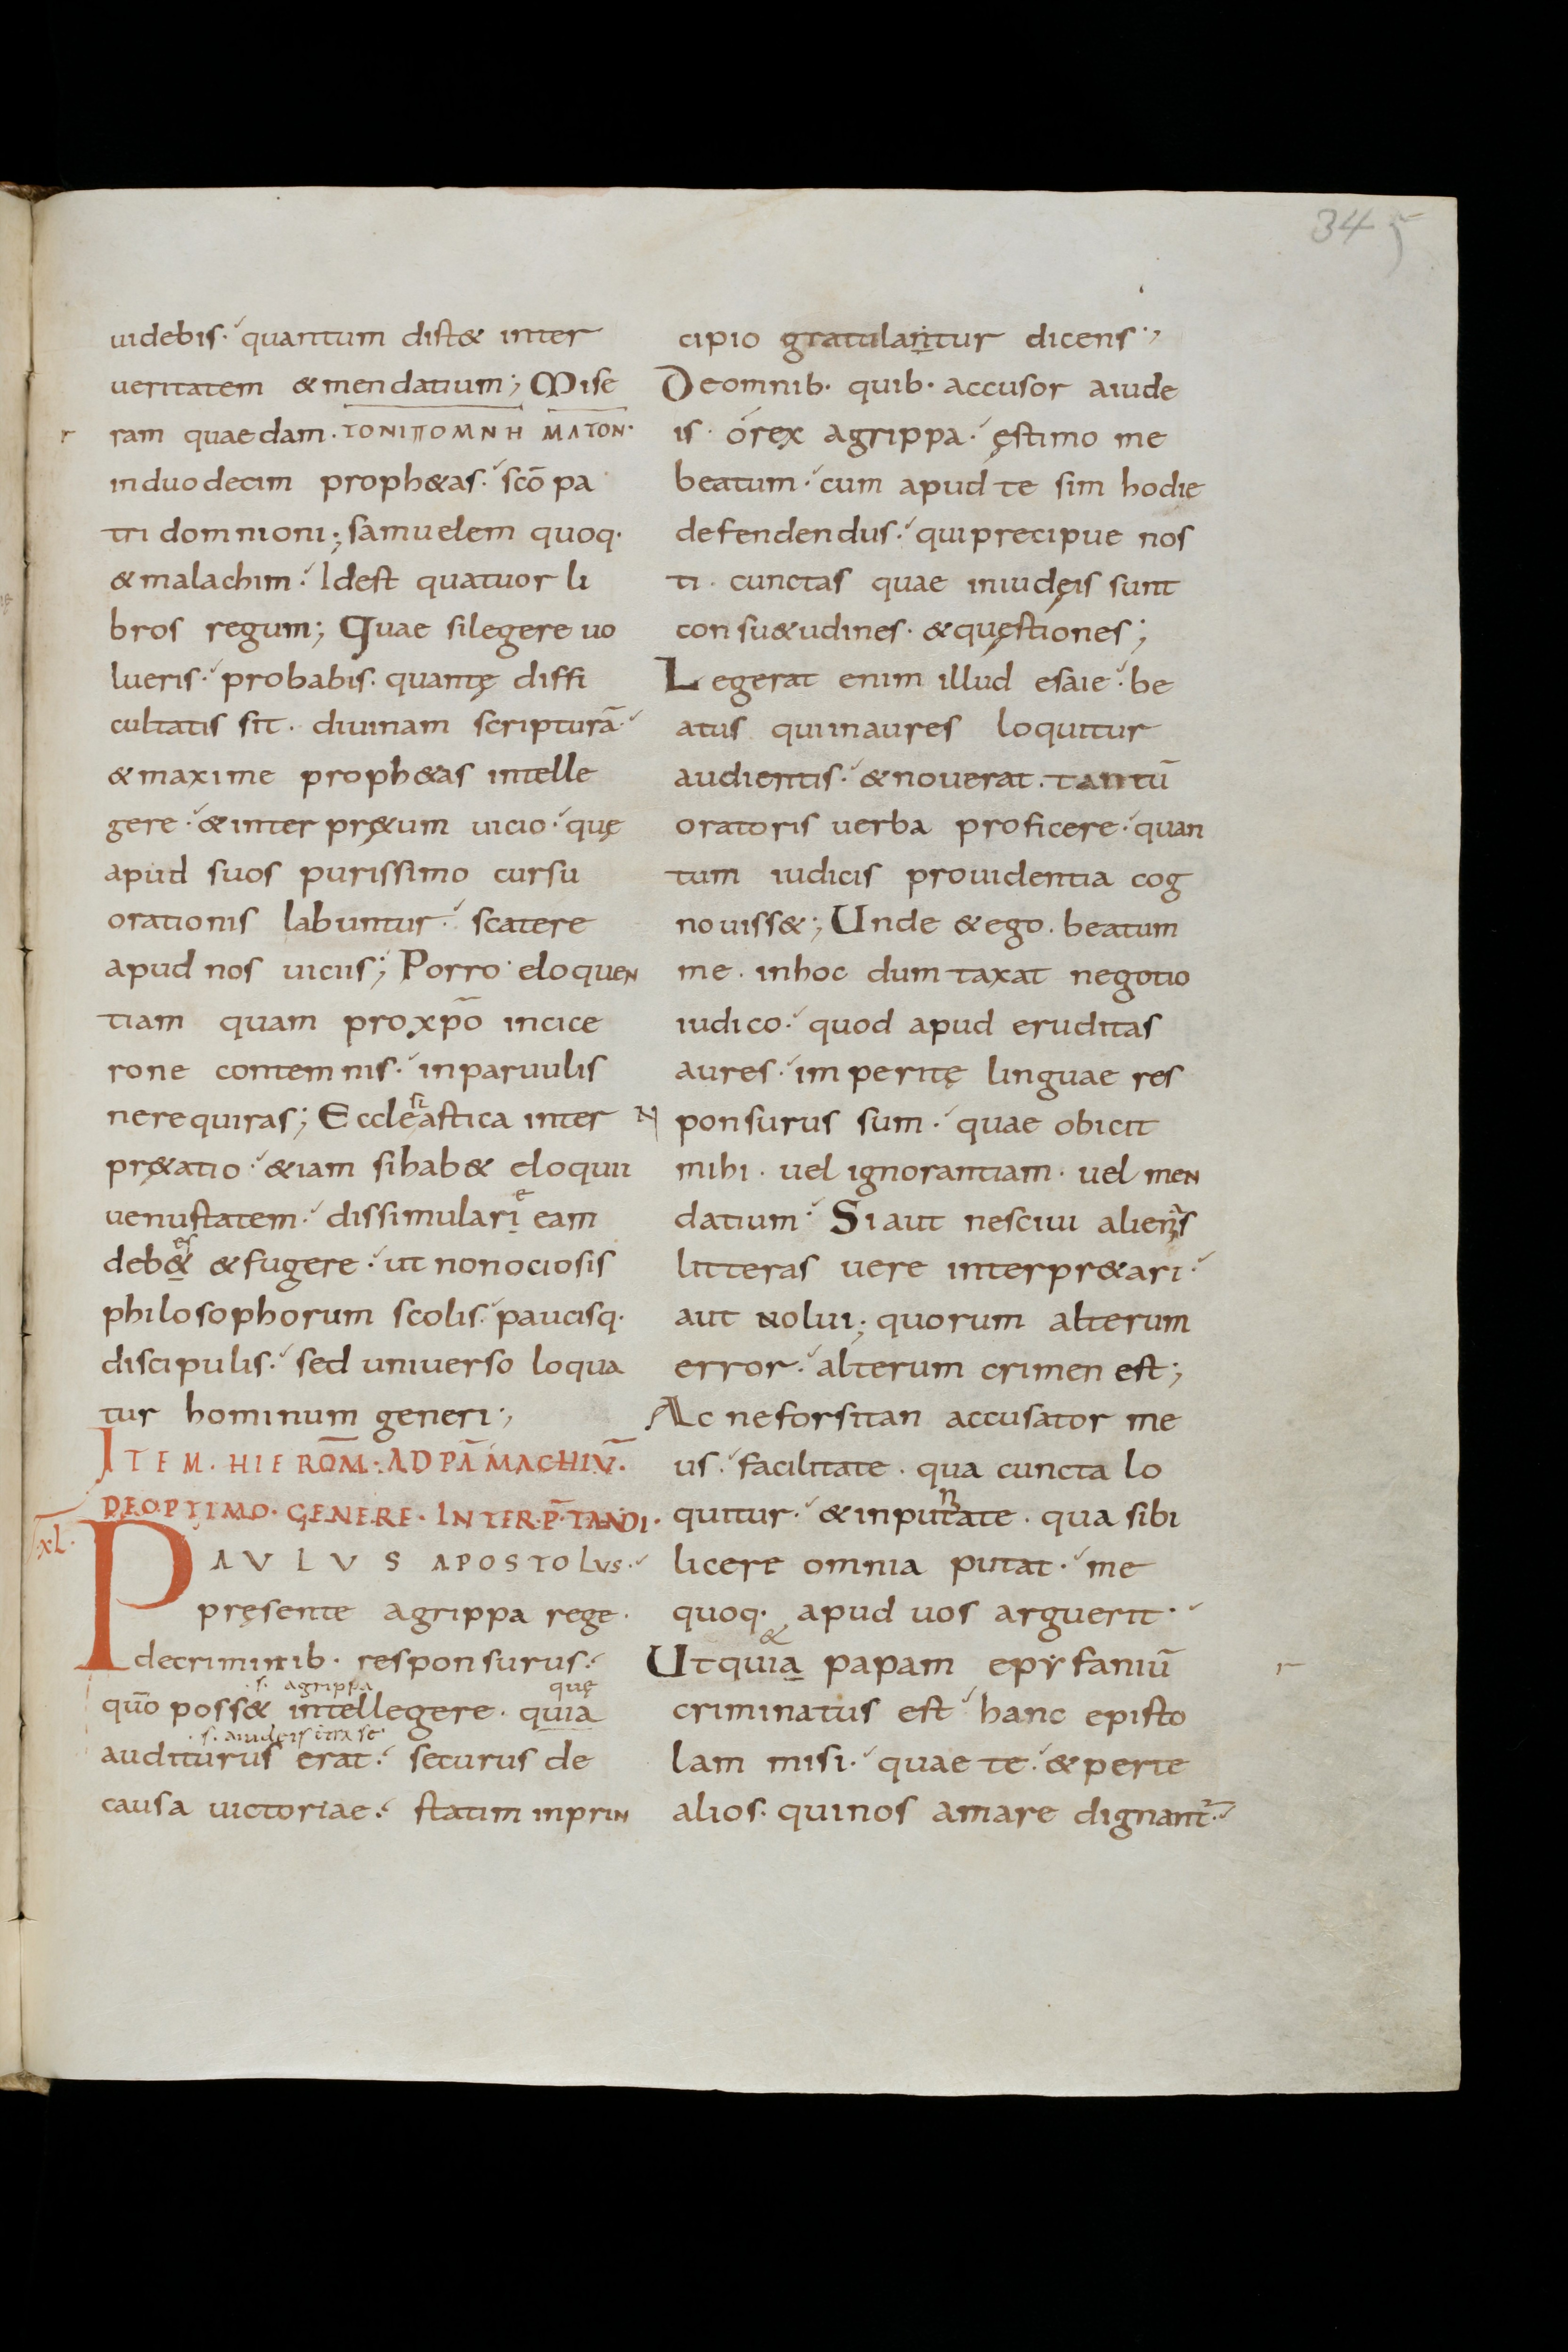 345
uidebis· quantum dist& inter
ueritatem &mendatium; Mise
r
ram quaedam· ΤΟΝΙΠΟΜΝΗ ΜΑΤΟΝ·
induodecim proph&as· scō pa
tri domnioni; samuelem quoq·
&malachim· Idest quatuor li
bros regum; Quae silegere uo
lueris· probabis· quantę diffi
cultatis sit· diuinam scripturā·
&maxime proph&as intelle
gere· &inter pr&um uicio· quę
apud suos purissimo cursu
orationis labuntur· scatere
apud nos uiciis; Porro· eloquen
tiam quam pro xp̄o incice
rone contemnis· inparuulis
nerequiras; Eccleasti&#8203;ca inter
si
pr&atio· &iam sihab& eloquii
uenustatem· dissimulari eam
e
deb& &fugere· ut nonociosis
es
philosophorum scolis· paucisq·
discipulis· sed uniuerso loqua
tur hominum generi;
ITEM· HIEROM̄· AD PĀMACHIV̄·
DEOPTIMO· GENERE· INTERP̄TANDI·
xL·
PAVLVS APOSTOLVS·
pręsente agrippa rege·
decriminib· responsurus·
s· agrippa quę
quō poss& intellegere· quia
s· aiudeis
auditurus erat· securus de
causa uictoriae· statim inprin
cipio gratulantur dicens;
Deomnib· quib· accusor aiude
is· órex agrippa· ęstimo me
beatum· cum apud te sim hodie
defendendus· quiprecipue nos
ti· cunctas quae iniudęis sunt
consu&udines· &quęstiones;
Legerat enim illud esaie· be
atus quiinaures loquitur
audientis· &nouerat· tantū
oratoris uerba proficere· quan
tum iudicis prouidentia cog
nouiss&; Unde &ego· beatum
me· inhoc dumtaxat negotio
iudico· quod apud eruditas
aures· imperitę linguae res
ponsurus sum· quae obicit
mihi· uel ignorantiam· uel men
datium· Siaut nesciui aliens
litteras uere interpr&ari·
aut nolui; quorum alterum
error· alterum crimen est;
Ac neforsitan accusator me
us· facilitate· qua cuncta lo
quitur· &inputate· qua sibi
n
licere omnia putat· me
quoq· apud uos arguerit·
&
Utquia papam epyfaniū
r
criminatus est hanc episto
lam misi· quae te· &perte
alios· quinos amare dignant̄·